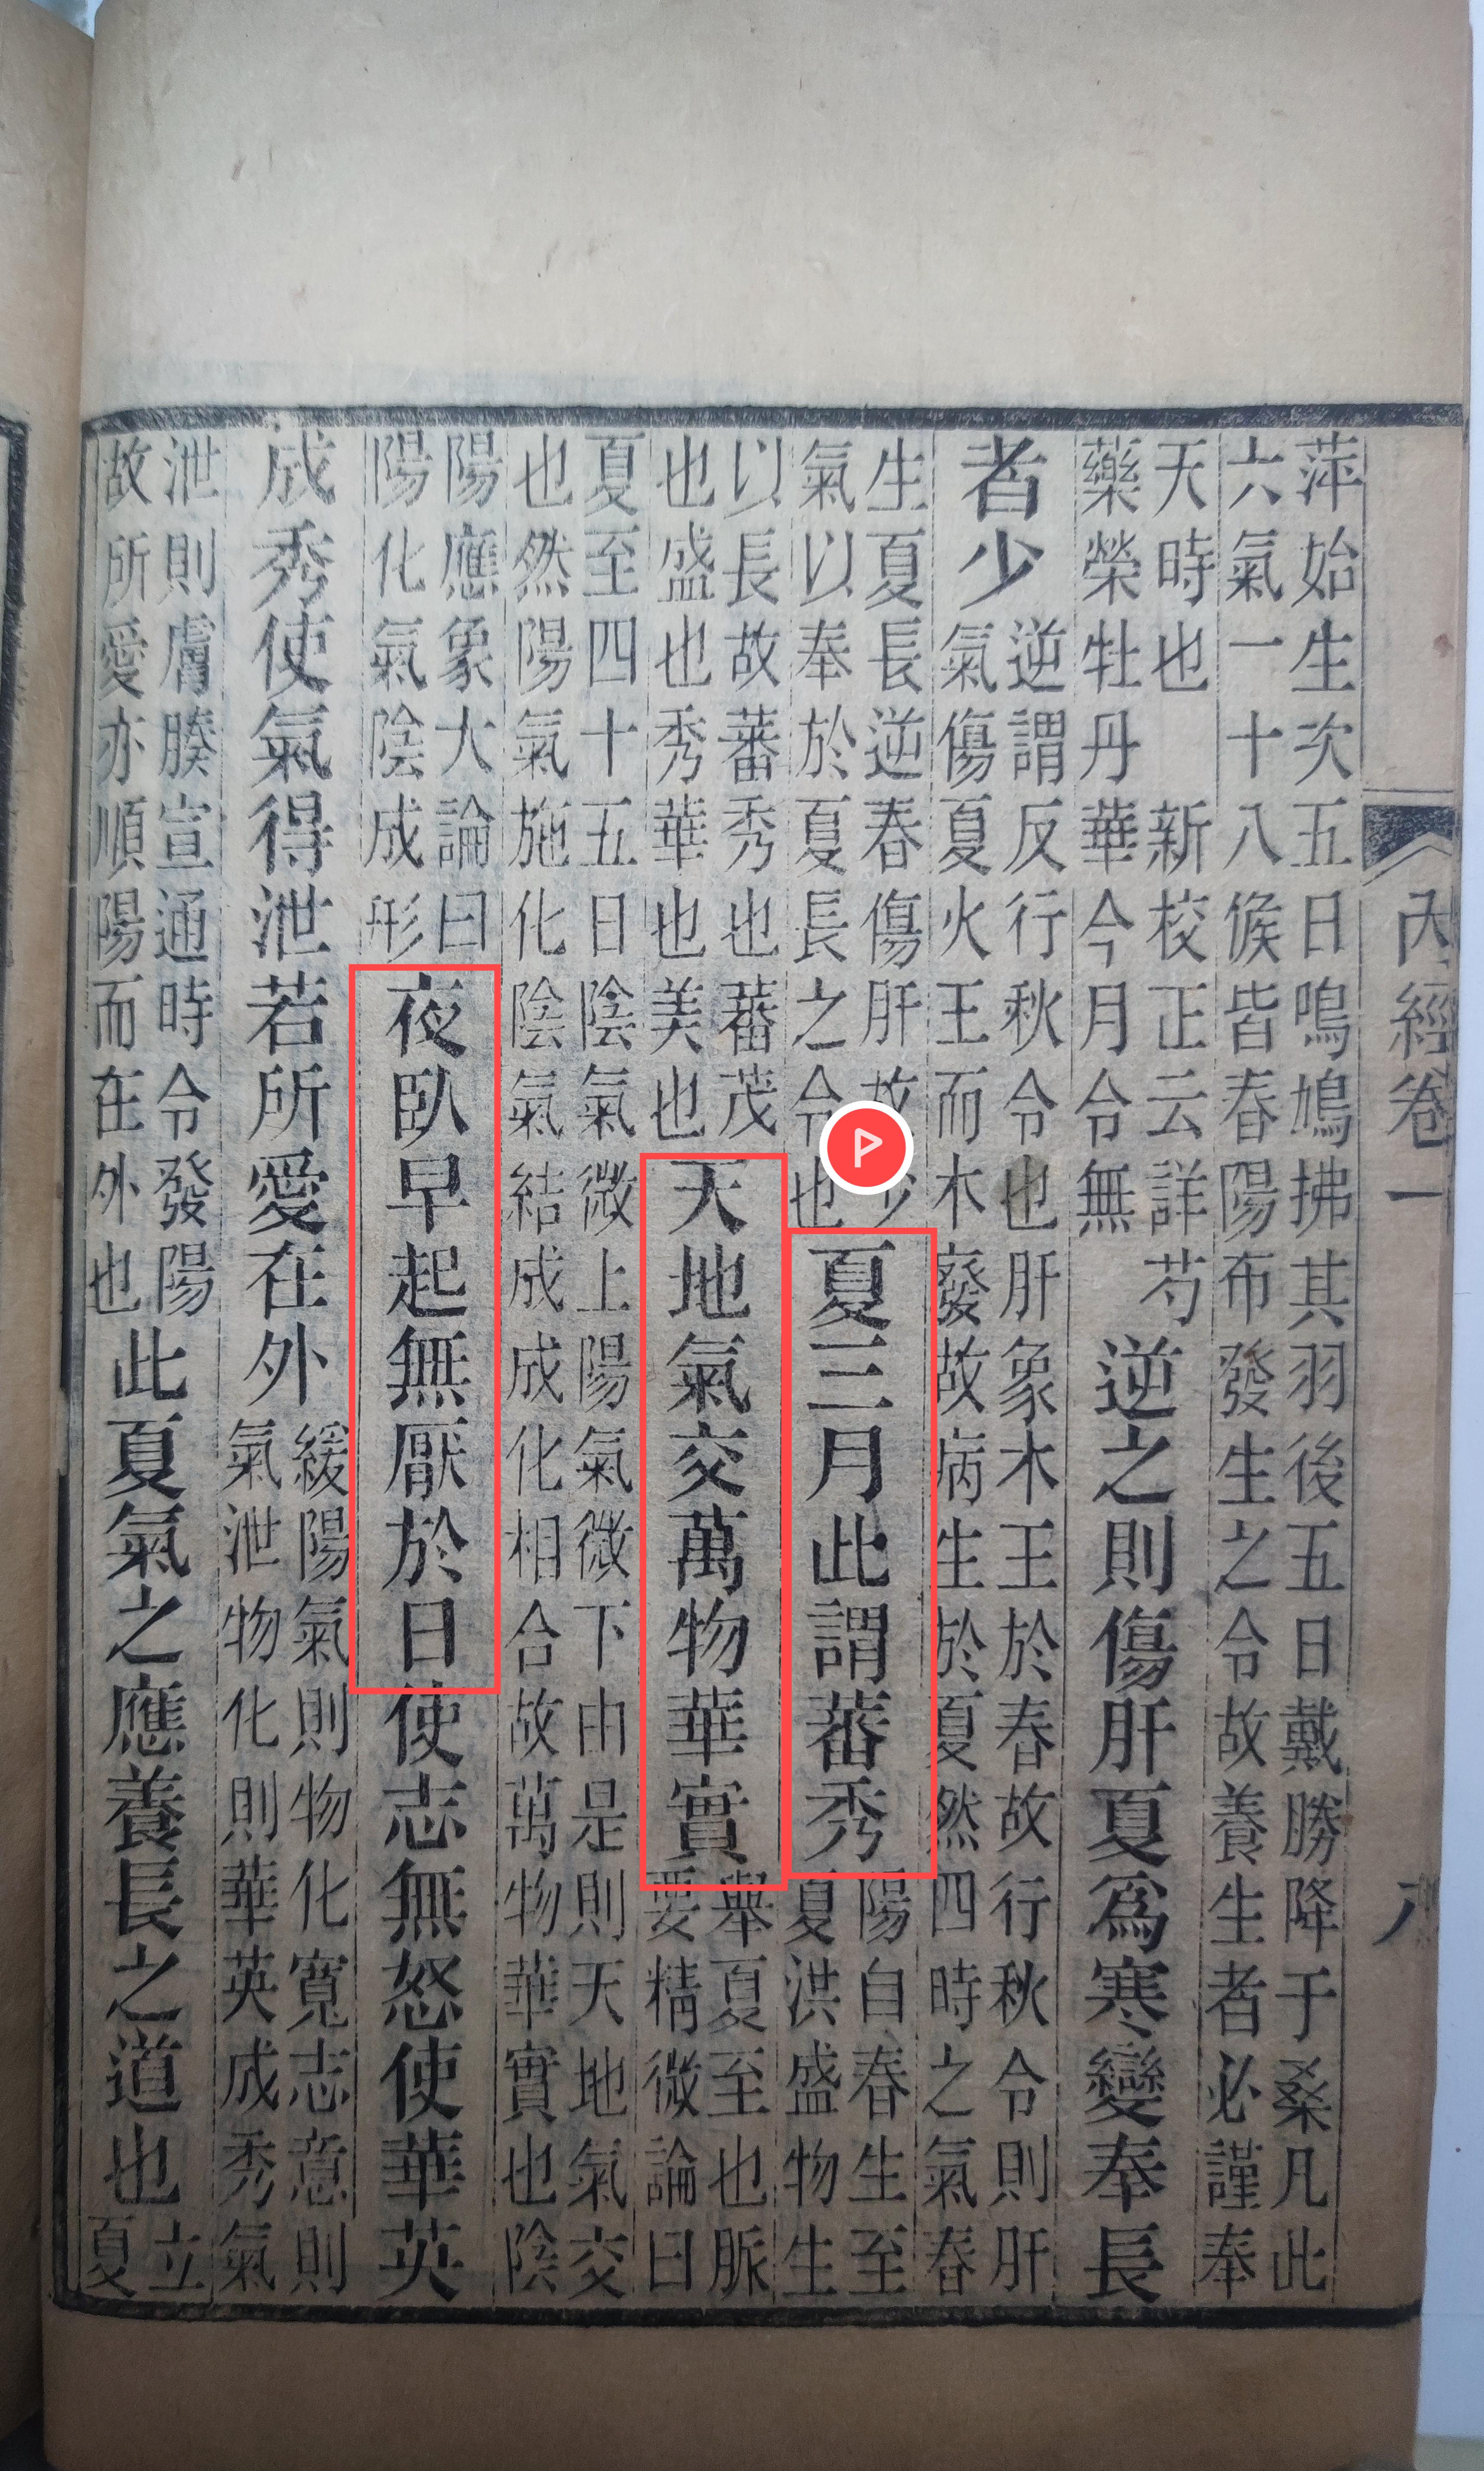 內經卷一
八
萍始生次五日鳴鳩拂其羽後五日戴勝降于桑凡此
六氣一十八候皆春陽布發生之令故養生者必謹奉
天時也 新校正云詳芍
藥榮牡丹華今月令無
逆之則傷肝夏爲寒變奉長
者少
逆謂反行秋令也肝象木王於春故行秋令則肝
氣傷夏火王而木廢故病生於夏然四時之氣春
生夏長逆春傷肝故少
氣以奉於夏長之令也
夏三月此謂蕃秀
陽自春生至
夏洪盛物生
以長故蕃秀也蕃茂
也盛也秀華也美也
天地氣交萬物華實
舉夏至也脈
要精微論曰
夏至四十五日陰氣微上陽氣微下由是則天地氣交
也然陽氣施化陰氣結成成化相合故萬物華實也陰
陽應象大論曰
陽化氣陰成形
夜臥早起無厭於日使志無怒使華英
成秀使氣得泄若所愛在外
緩陽氣則物化寬志意則
氣泄物化則華英成秀氣
泄則膚腠宣通時令發陽
故所愛亦順陽而在外也
此夏氣之應養長之道也
立
夏